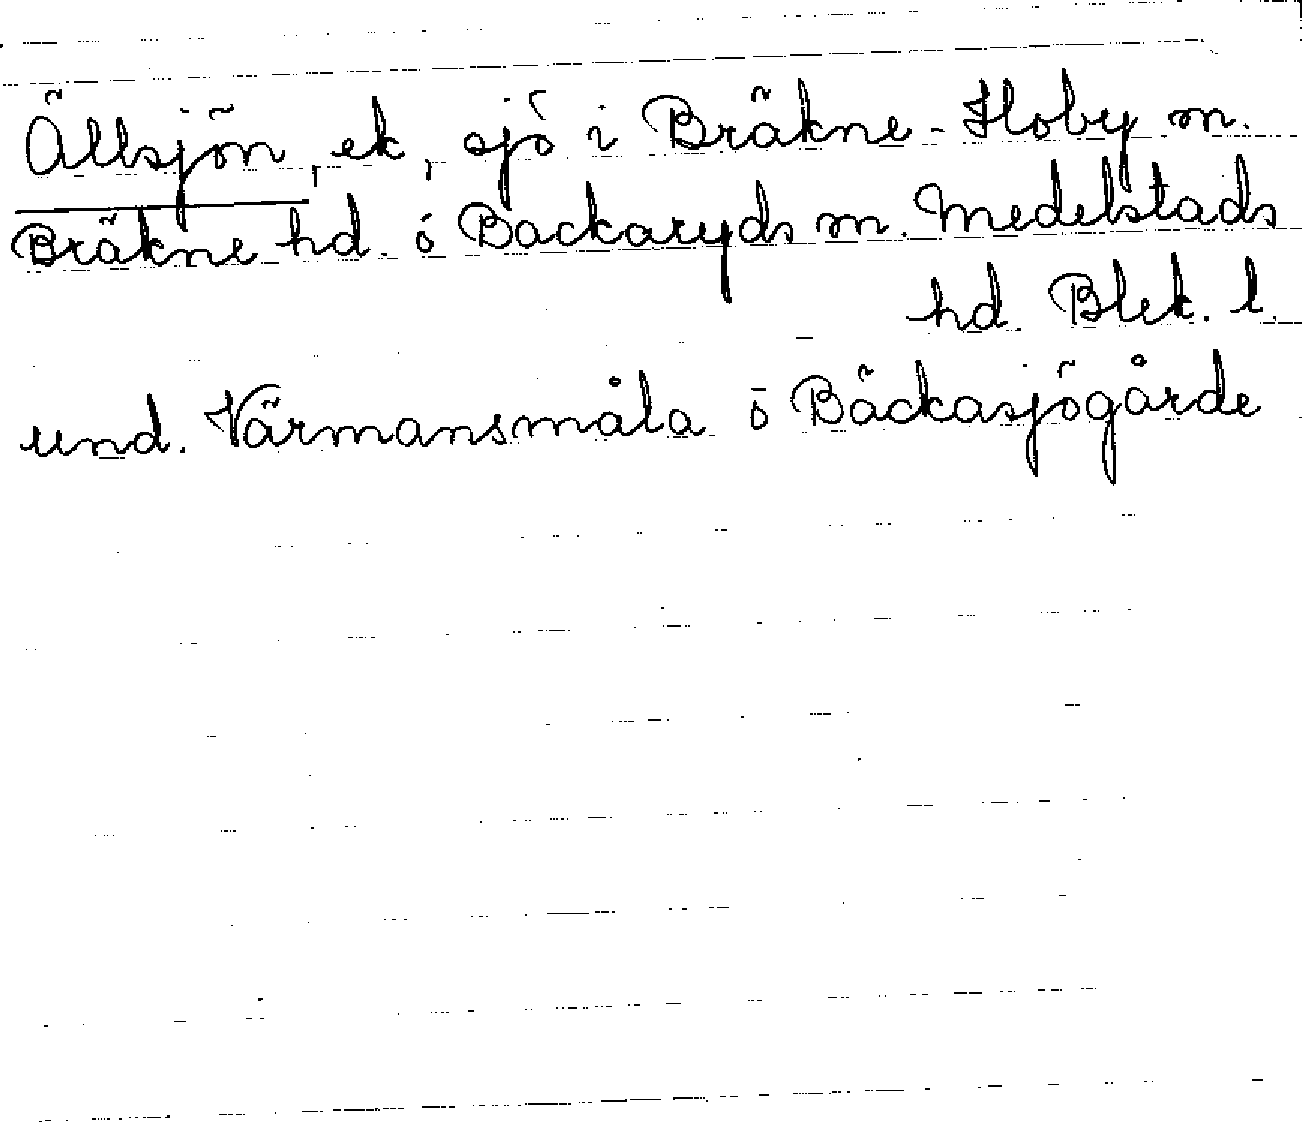 Ällsjön, ek, sjö i Bräkne-Hoby sn.
Bräkne hd. ö Backaryds sn. Medelstads
hd. Blek. l.
und. Värmansmåla ö Bäckasjögårde